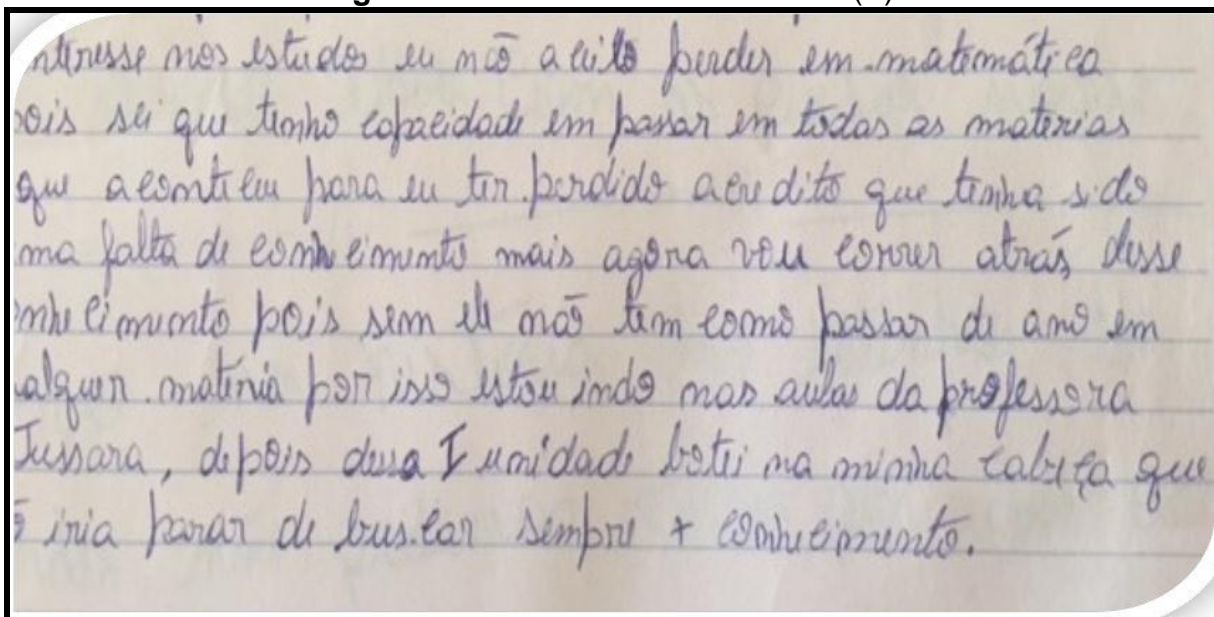 nteresse nos estudos eu não aceito perder em matemática
pois sei que tenho capacidade em passar em todas as materias
que aconteceu para eu ter perdido acredito que tenha sido
uma falta de conhecimento mais agora vou correr atrás desse
onhecimento pois sem ele não tem como passar de ano em
ualquer materia por isso estou indo nas aulas da professora
Jussara, depois dessa I unidade botei na minha cabeça que
ão iria parar de buscar sempre + conhecimento.